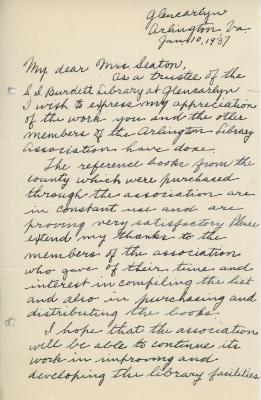 Glencarlyn
Arlington, Va.
Jan. 10, 1937
My dear Mrs Seaton,
As a trustee of the
S.S. Burdett Library at Glencarlyn
I wish to express my appreciation
of the work you and the other
members of the Arlington Library
Association have done.
The reference books from the
county which were purchased
through the association are
in constant use and are
proving very satisfactory. Please
extend my thanks to the
members of the association
who gave of their time and
interest in compiling the list
and also in purchasing and
distributing the books.
I hope that the association
will be able to continue its
work in improving and
developing the library facilities